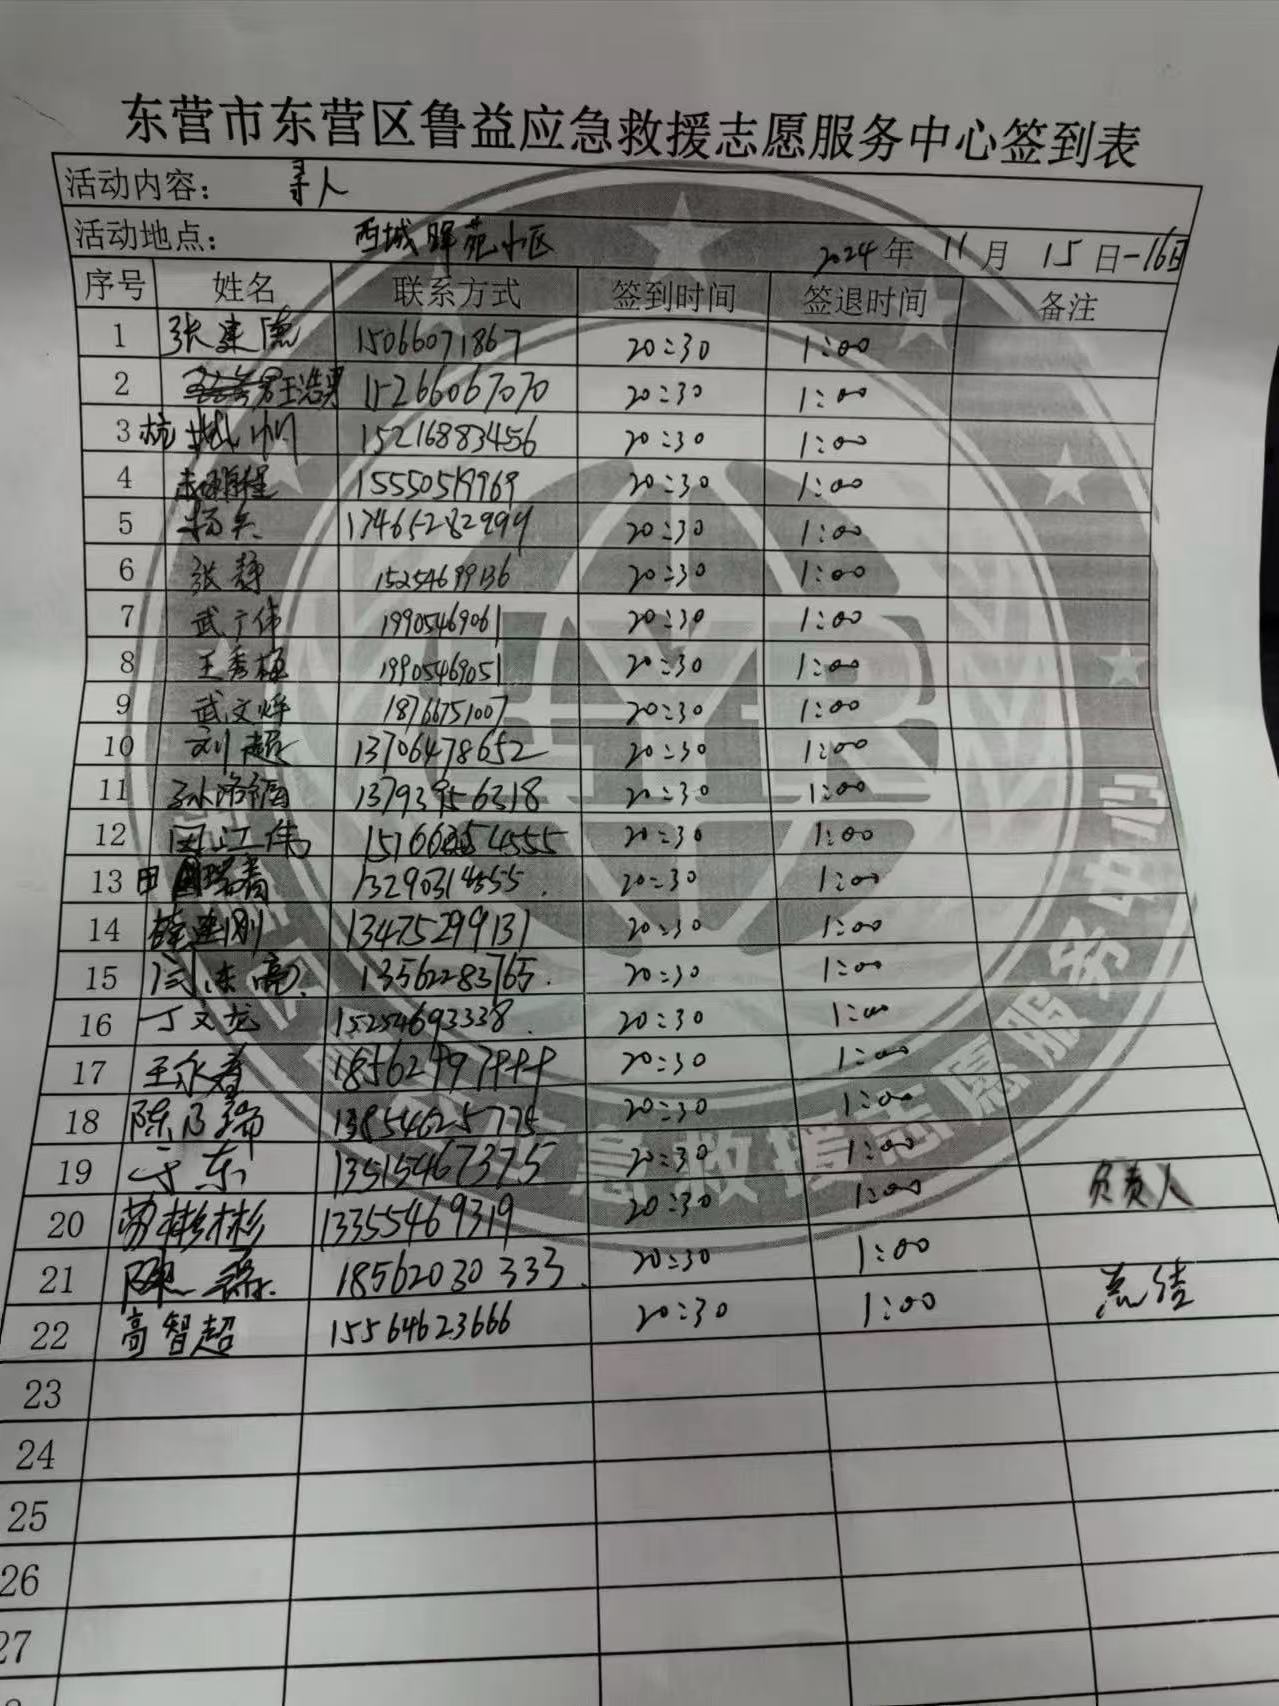 东营市东营区鲁益应急救援志愿服务中心签到表
活动内容： 寻人
活动地点： 西城晖苑小区 2024年 11月 15日-16日
序号 姓名 联系方式 签到时间 签退时间 备注
1 张建德 15066071867 20:30 1:00
2 王浩男 15266067070 20:30 1:00
3 15216883456 20:30 1:00
4 15550519969 20:30 1:00
5 杨兵 20:30 1:00
6 张静 15254699136 20:30 1:00
7 武广伟 19905469061 20:30 1:00
8 王秀梅 19905469051 20:30 1:00
9 武文烨 18766751007 20:30 1:00
10 刘超 13706478652 20:30 1:00
11 13793956318 20:30 1:00
12 20:30 1:00
13 20:30 1:00
14 薛建刚 13475299131 20:30 1:00
15 闫东亮 13562283765 20:30 1:00
16 丁文龙 15254693338 20:30 1:00
17 王永春 20:30 1:00
18 陈乃瑞 13854625775 20:30 1:00
19 于东 13515467375 20:30 1:00
20 劳彬彬 13355469319 20:30 1:00 负责人
21 陈 18562030333 20:30 1:00
22 高智超 15564623666 20:30 1:00 总结
23
24
25
26
27
应急救援志愿服务中心